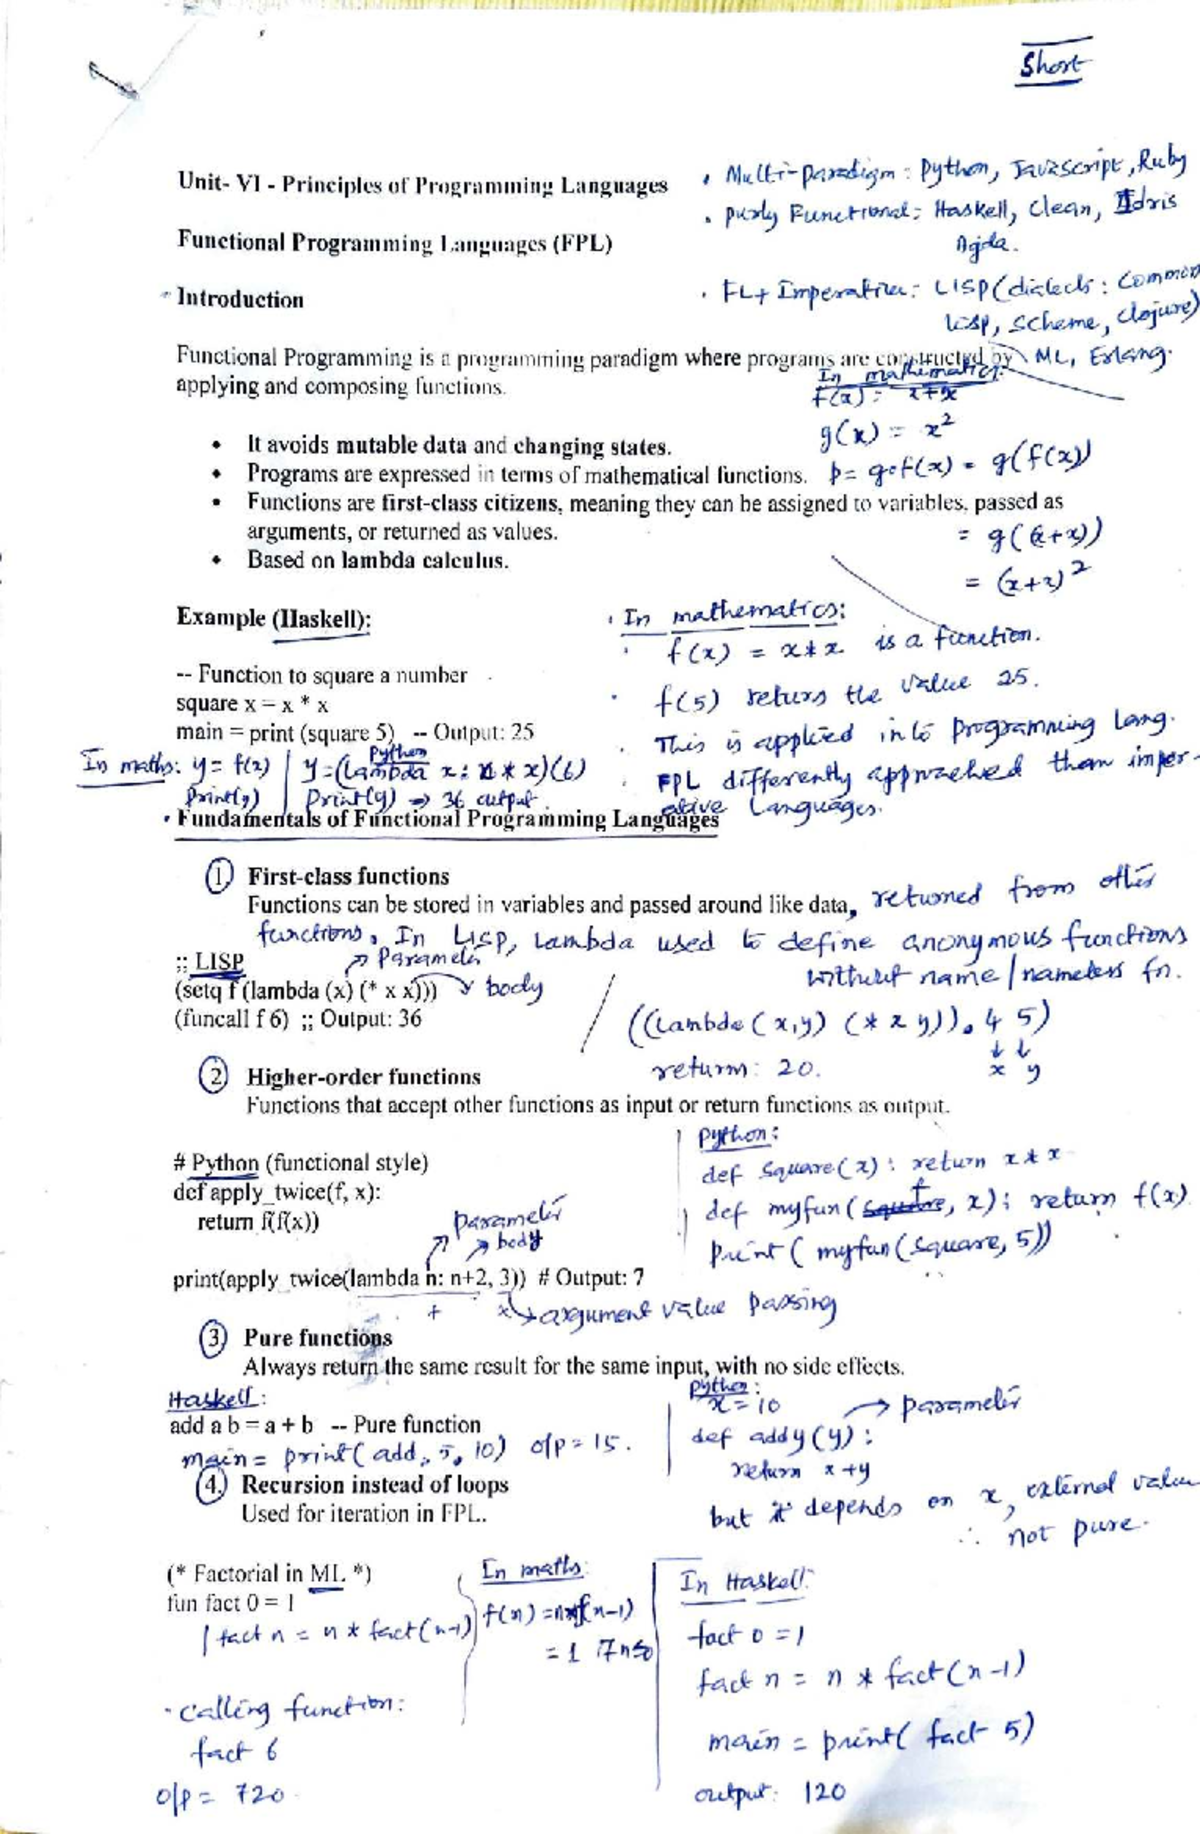 Short
Unit- VI - Principles of Programming Languages
• Multi-paradigm: Python, Javascript, Ruby
• purly Functional: Haskell, Clean, Idris
Agda.
Functional Programming Languages (FPL)
• FL+ Imperative: LISP (dialects: Common
Lisp, Scheme, Clojure)
ML, Erlang.
Introduction
Functional Programming is a programming paradigm where programs are constructed by
applying and composing functions.
In mathematics:
f(x) = x+x
g(x) = x²
• It avoids mutable data and changing states.
• Programs are expressed in terms of mathematical functions.
p = g∘f(x) = g(f(x))
• Functions are first-class citizens, meaning they can be assigned to variables, passed as
arguments, or returned as values.
= g((x+x))
• Based on lambda calculus.
= (x+x)²
Example (Haskell):
-- Function to square a number
square x = x * x
main = print (square 5) -- Output: 25
• In mathematics:
• f(x) = x*x is a function.
• f(5) returs the value 25.
• This is applied into programming lang.
• FPL differently approached than imper-
ative Languages.
In maths: y = f(x)
print(y)
Python
y=(lambda x: x * x)(6)
print(y) → 36 output
• Fundamentals of Functional Programming Languages
1 First-class functions
Functions can be stored in variables and passed around like data, returned from other
functions. In LISP, Lambda used to define anonymous functions
without name/nameless fn.
;; LISP
→ Parameter
(setq f (lambda (x) (* x x))) → body
(funcall f 6) ;; Output: 36
((Lambda (x,y) (* x y)). 4 5)
↓ ↓
x y
return: 20.
2 Higher-order functions
Functions that accept other functions as input or return functions as output.
# Python (functional style)
def apply_twice(f, x):
return f(f(x))
parameter
body
print(apply_twice(lambda n: n+2, 3)) # Output: 7
x → argument value passing
python:
def square(x): return x*x
def myfun(f, x): return f(x)
print( myfun(square, 5))
3 Pure functions
Always return the same result for the same input, with no side effects.
Haskell:
add a b = a + b -- Pure function
main = print( add, 5, 10) o/p = 15.
python:
x = 10
def addy(y): → parameter
return x+y
but it depends on x, external value
∴ not pure.
4. Recursion instead of loops
Used for iteration in FPL.
(* Factorial in ML *)
fun fact 0 = 1
| fact n = n * fact(n-1)
• Calling function:
fact 6
o/p = 720
In maths:
f(n) = n*f(n-1)
= 1 if n=0
In Haskell:
fact 0 = 1
fact n = n * fact(n-1)
main = print( fact 5)
output: 120